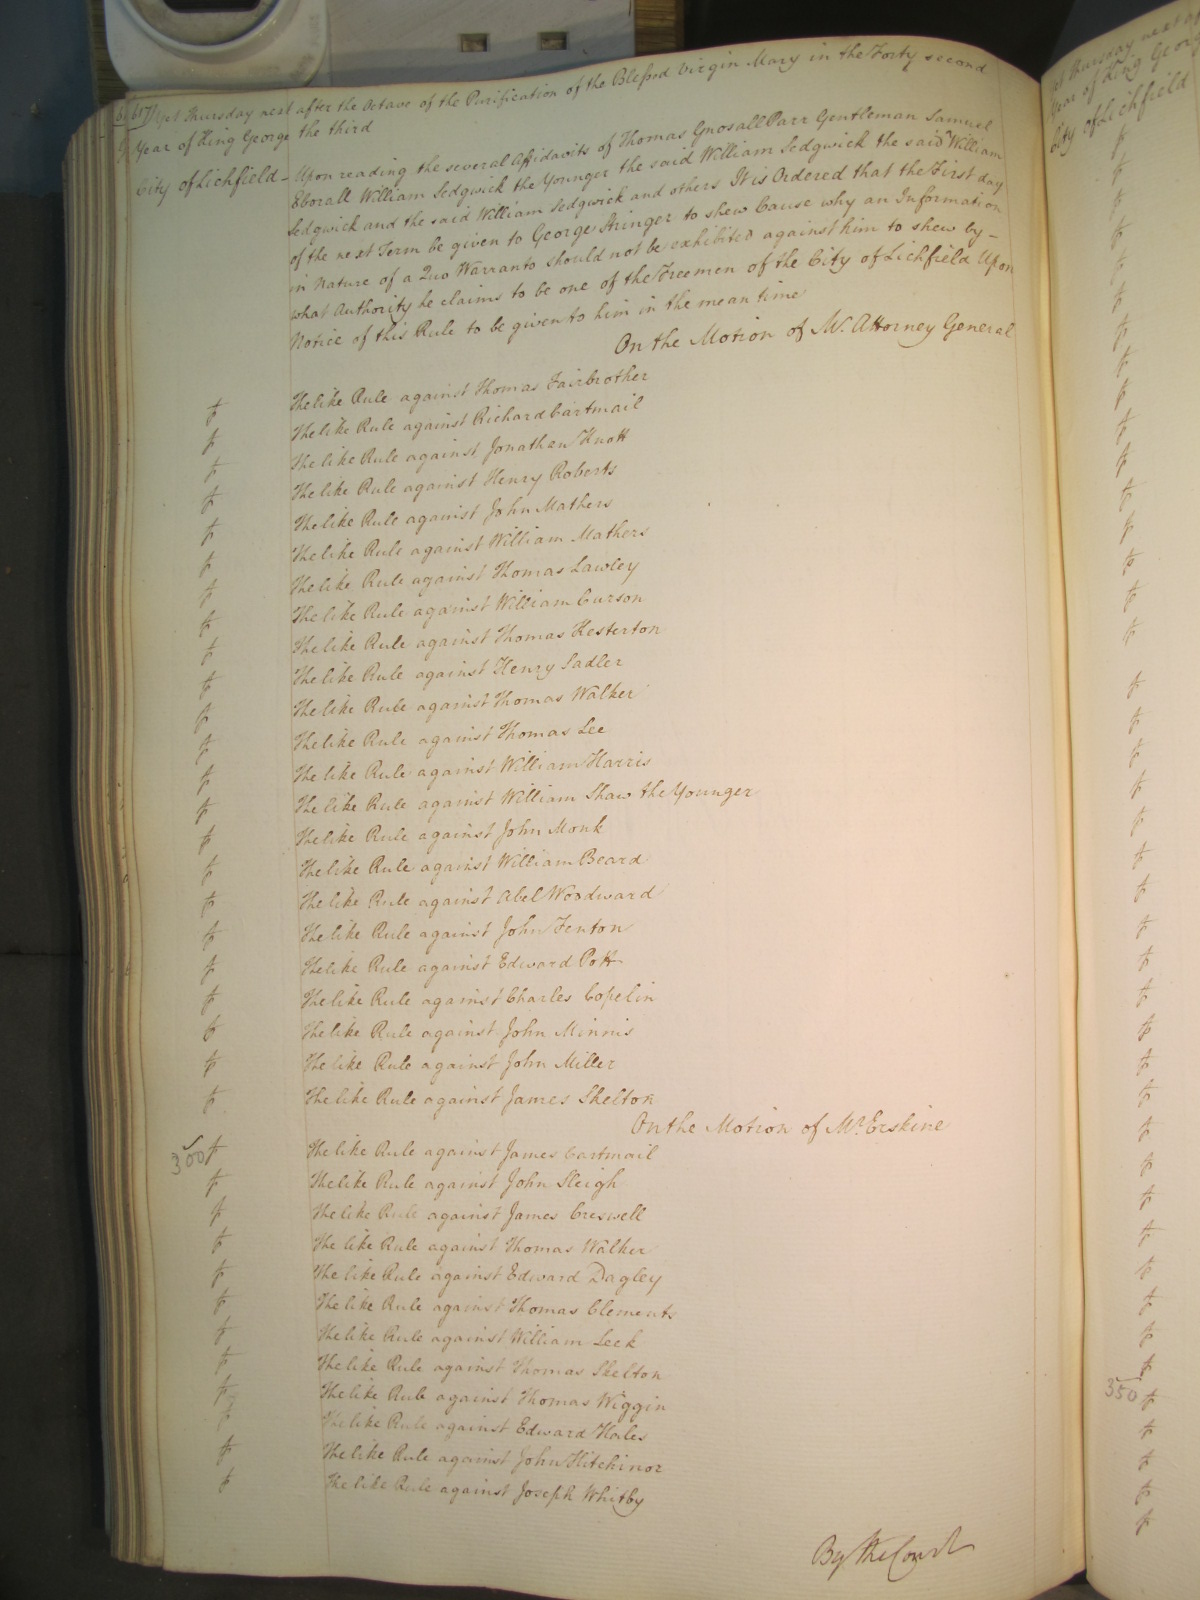 617 Yet Thursday next after the Octave of the Purification of the Blessed Virgin Mary in the Forty second
Year of King George the third
City of Lichfield - Upon reading the several Affidavits of Thomas Gnosall Parr Gentleman Samuel
Eborall William Sedgwick the Younger the said William Sedgwick the said William
Sedgwick and the said William Sedgwick and others It is Ordered that the First day
of the next Term be given to George Stringer to shew Cause why an Information
in Nature of a Quo Warranto should not be exhibited against him to shew by -
what Authority he claims to be one of the Freemen of the City of Lichfield Upon
Notice of this Rule to be given to him in the mean time
On the Motion of Mr. Attorney General
The like Rule against Thomas Fairbrother
The like Rule against Richard Cartmail
The like Rule against Jonathan Knott
The like Rule against Henry Roberts
The like Rule against John Mathers
The like Rule against William Mathers
The like Rule against Thomas Lawley
The like Rule against William Curson
The like Rule against Thomas Kesterton
The like Rule against Henry Sadler
The like Rule against Thomas Walker
The like Rule against Thomas Lee
The like Rule against William Harris
The like Rule against William Shaw the Younger
The like Rule against John Monk
The like Rule against William Beard
The like Rule against Abel Woodward
The like Rule against John Fenton
The like Rule against Edward Pott
The like Rule against Charles Copelin
The like Rule against John Minnis
The like Rule against John Miller
The like Rule against James Skelton
On the Motion of Mr. Erskine
300 The like Rule against James Cartmail
The like Rule against John Sleigh
The like Rule against James Creswell
The like Rule against Thomas Walker
The like Rule against Edward Dagley
The like Rule against Thomas Clements
The like Rule against William Leek
The like Rule against Thomas Skelton
The like Rule against Thomas Wiggin
The like Rule against Edward Hailes
The like Rule against John Hitchinor
The like Rule against Joseph Whitby
By the Court
Yet Thursday next
Year of King George
City of Lichfield
350